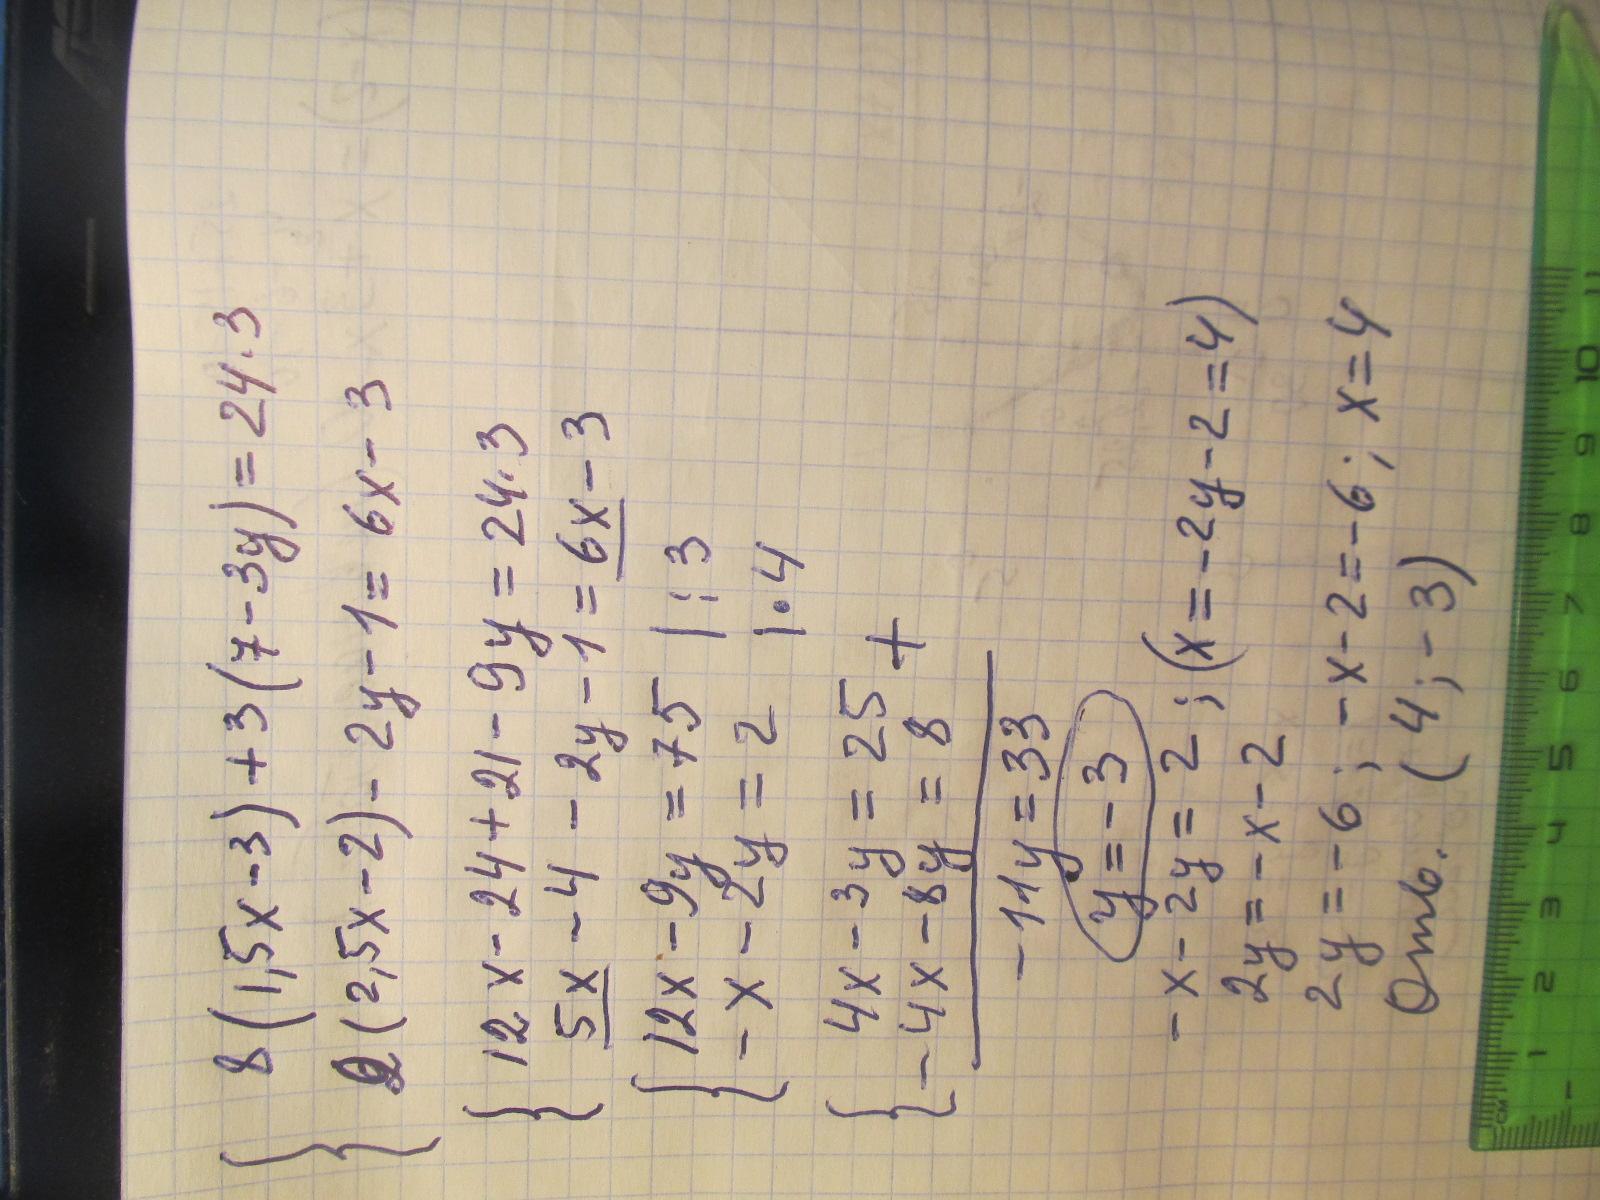 8(1,5x-3)+3(7-3y)=24·3
2(2,5x-2)-2y-1=6x-3
12x-24+21-9y=24·3
5x-4-2y-1=6x-3
12x-9y=75 |:3
-x-2y=2 |·4
4x-3y=25 +
-4x-8y=8
-11y=33
y=-3
-x-2y=2; (x=-2y-2=4)
2y=-x-2
2y=-6; -x-2=-6; x=4
Отв. (4;-3)
1 2 3 4 5 6 7 8 9 10 11